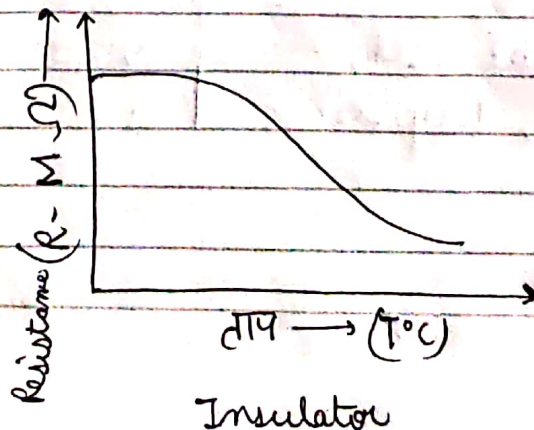 Resistance (R- M Ω)
ताप → (T°C)
Insulator